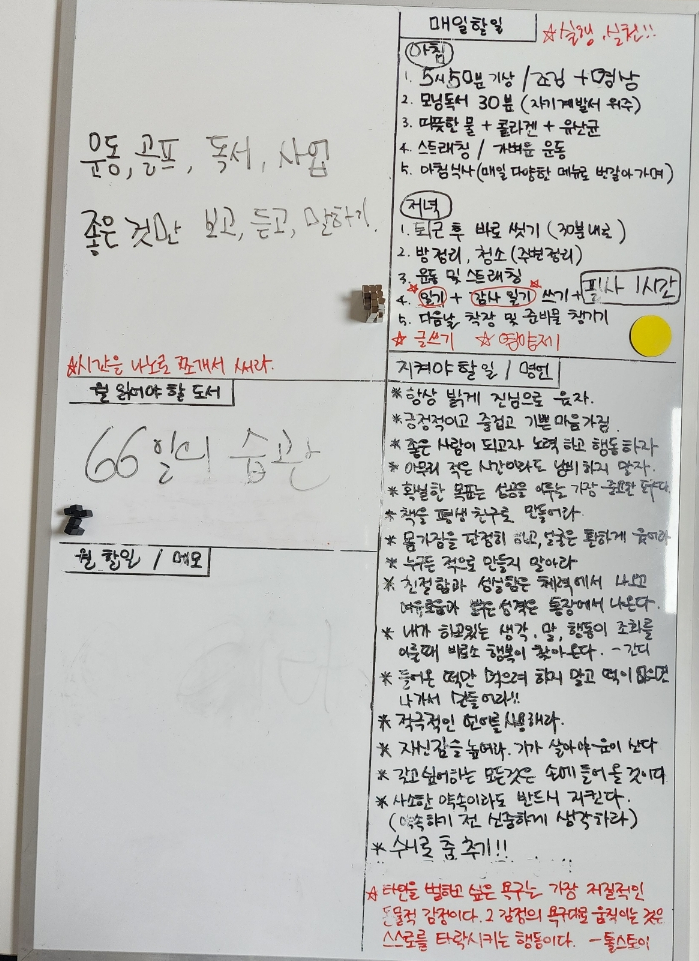 운동, 골프, 독서, 사업
좋은 것만 보고, 듣고, 말하기.
☆시간을 나노로 쪼개서 써라.
월 읽어야 할 도서
66일의 습관
월 할일 / 메모
매일할일
☆실행, 실천!!
아침
1. 5시50분 기상 / 조깅 + 명상
2. 모닝독서 30분 (자기계발서 위주)
3. 따뜻한 물 + 콜라겐 + 유산균
4. 스트레칭 / 가벼운 운동
5. 아침식사 (매일 다양한 메뉴로 번갈아가며)
저녁
1. 퇴근 후 바로 씻기 (30분내로)
2. 방정리, 청소 (주변정리)
3. 운동 및 스트레칭
4. 일기 + 감사 일기 쓰기 + 필사 1시간
5. 다음날 착장 및 준비물 챙기기
☆ 글쓰기 ☆ 영양제
지켜야할일 / 명언
* 항상 밝게 진심으로 웃자.
* 긍정적이고 즐겁고 기쁜마음가짐.
* 좋은 사람이 되고자 노력하고 행동하자
* 아무리 적은 시간이라도 낭비하지 말자.
* 확실한 목표는 성공을 이루는 가장 중요한
* 책을 평생친구로 만들어라.
* 몸가짐을 단정히 하고, 얼굴은 환하게 웃어라
* 누구든 적으로 만들지 말아라
* 친절함과 성실함은 체력에서 나오고
여유로움과 좋은 성격은 통장에서 나온다.
* 내가 하고있는 생각, 말, 행동이 조화를
이룰때 비로소 행복이 찾아온다. -간디
* 들어온 떡만 먹으려 하지 말고 떡이 없으면
나가서 만들어라!!
* 적극적인 언어를 사용해라.
* 자신감을 높여라. 기가 살아야 운이 산다
* 갖고싶어하는 모든것은 손에 들어올 것이다
* 사소한 약속이라도 반드시 지킨다.
(약속하기 전 신중하게 생각하라)
* 수시로 춤추기!!
☆ 타인을 벌하고 싶은 욕구는 가장 저질적인
동물적 감정이다. 그 감정의 욕구대로 움직이는 것은
스스로를 타락시키는 행동이다. -톨스토이